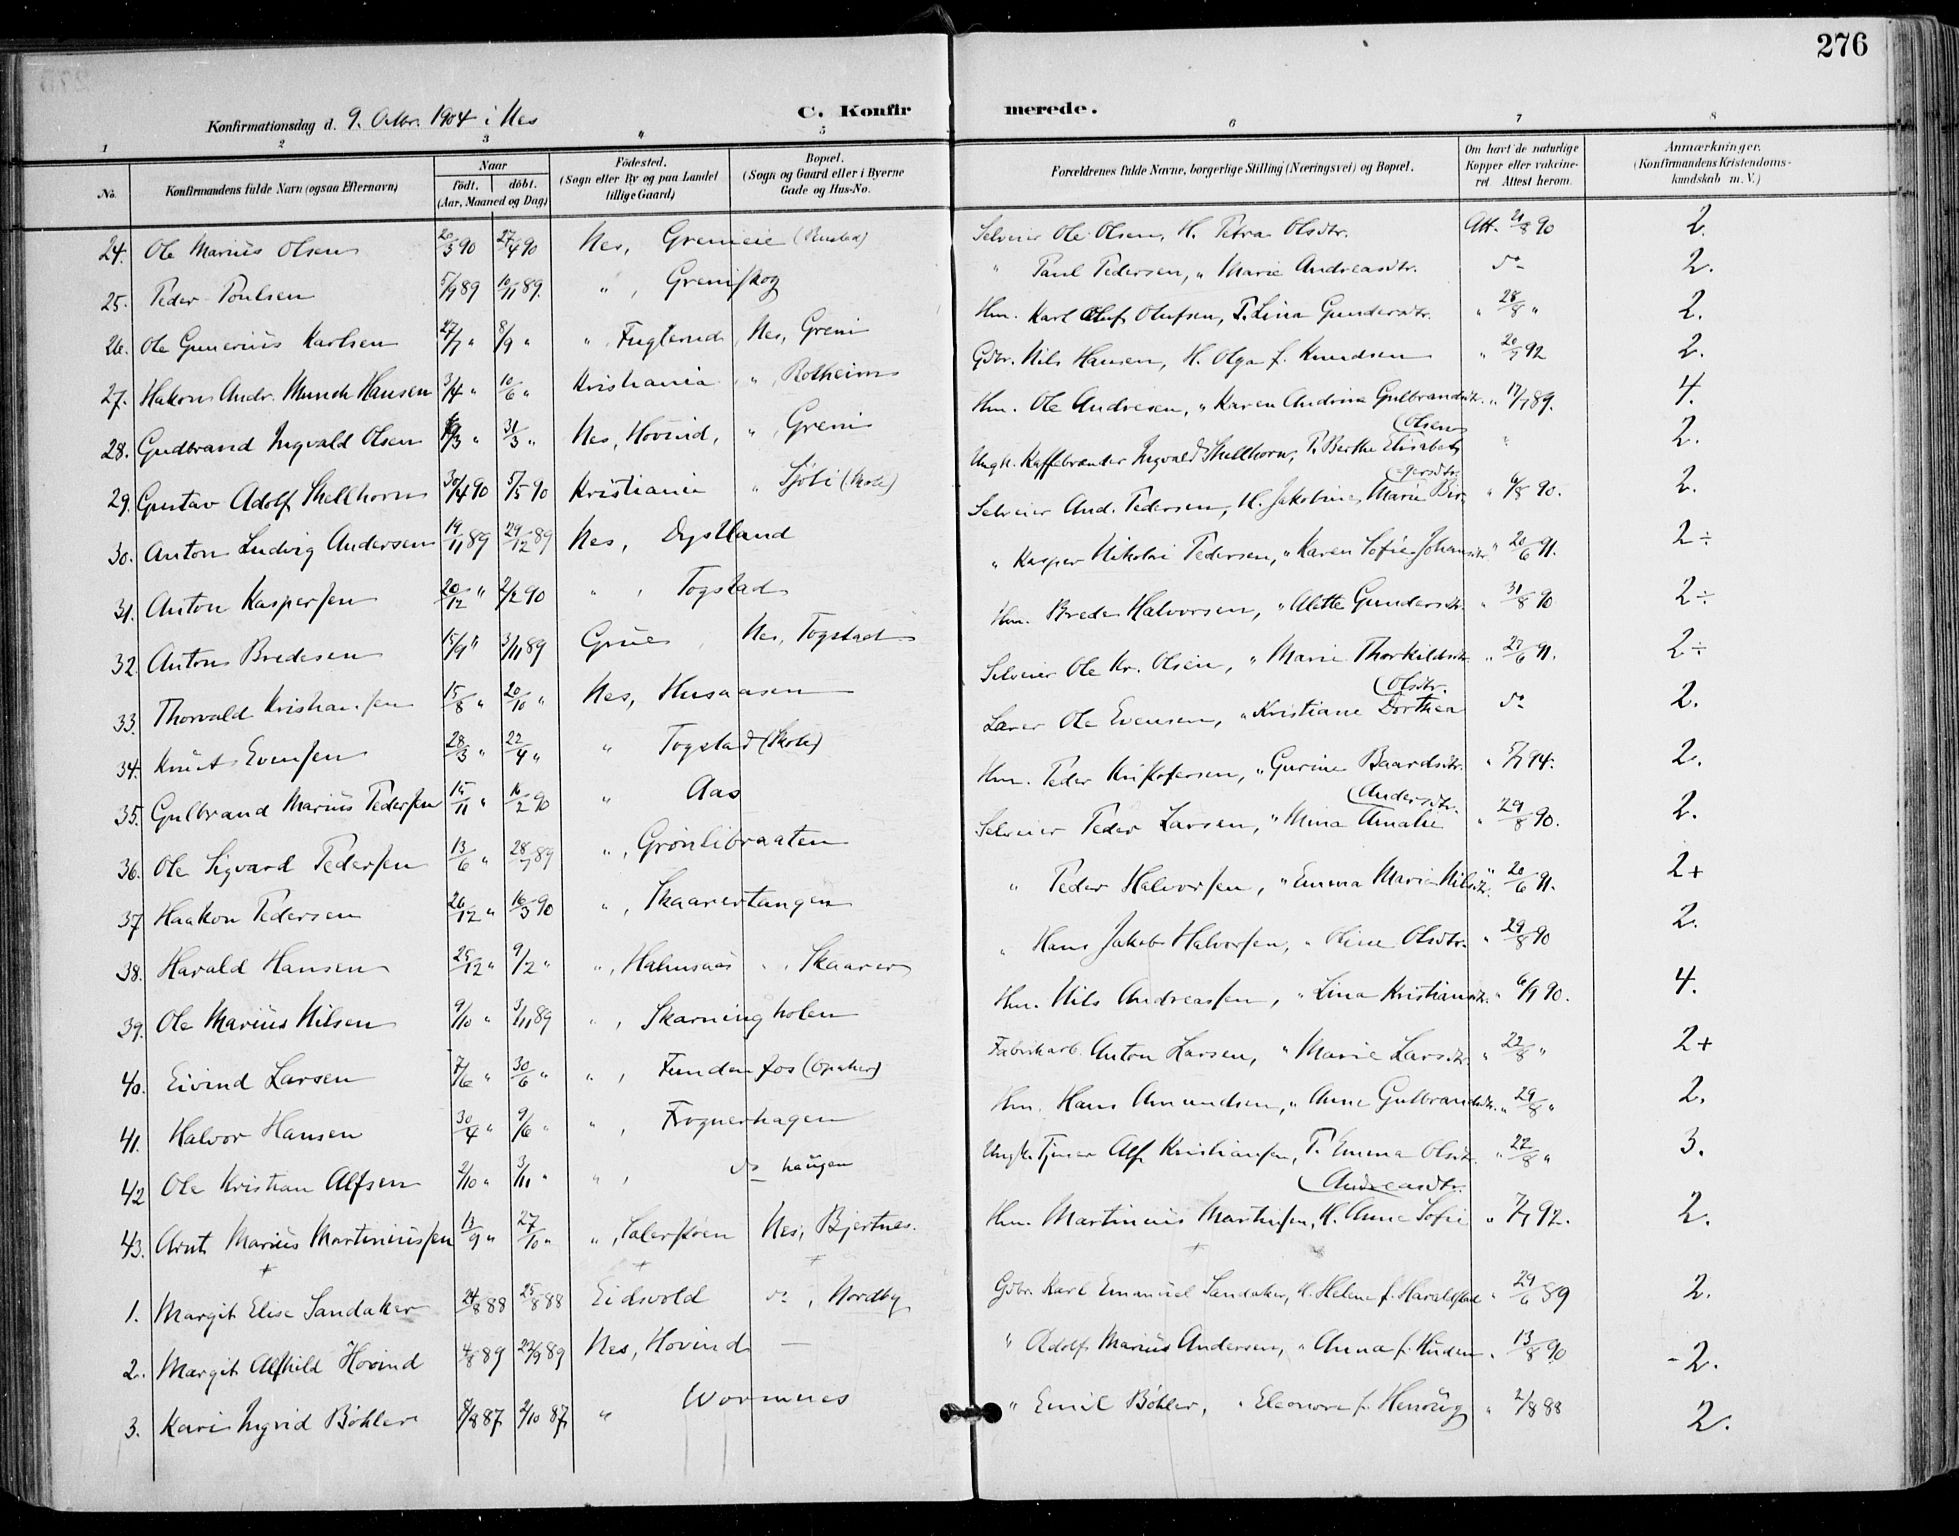 276
Konfirmationsdag d. 9. Oktbr. 1904 i Nes C. Konfirmerede.
1 2 3 " 5 6 7 8
No. Konfirmandens fulde Navn (ogsaa Efternavn) Naar født. døbt. (Aar, Maaned og Dag) Fødested. (Sogn eller By og paa Landet tillige Gaard) Bopæl. (Sogn og Gaard eller i Byerne Gade og Hus-No. Forældrenes fulde Navne, borgerlige Stilling (Næringsvei) og Bopæl. Om havt de naturlige Kopper eller vakcineret. Attest herom. Anmærkninger. (Konfirmandens Kristendomskundskab m. V.)
24. Ole Marius Olsen 20/3 90 27/4 90 Nes, Grenieie Selveier Ole Olsen, H. Petra Olsdtr. Att. 21/8 90 2.
25. Peder Poulsen 5/9 89 10/11 89. " , Greniskog " Paul Pedersen, " Marie Andreasdtr. do 2.
26. Ole Gunerius Karlsen 27/7 " 8/9 " " , Fuglerud Nes, Greni Hm. Karl Oluf Olufsen, T. Lina Gundersdtr. " 28/8 " 2.
27. Hakon Andr. Munch Hansen 3/4 " 10/6 " Kristiania " , Rotheim Gdbr. Nils Hansen, H. Olga f. Knudsen " 20/9 92 2.
28. Gudbrand Ingvald Olsen 19/3 " 31/3 " Nes, Hovind, " , Greni Hm. Ole Andresen, " Karen Andrine Gulbrandsdtr. " 17/7 89. 4.
29. Gustav Adolf Skellhorn 30/4 90 5/5 90 Kristiania " Sjøli (Skole) Ungk. Kaffebrænder Ingvald Skellhorn, P. Berthe Elisabeth Olsen " 2.
30. Anton Ludvig Andersen 19/11 89 29/12 89 Nes, Dystland Selveier And. Pedersen, H. Jakobine Marie Birgersdtr. " 6/8 90. 2.
31. Anton Kaspersen 20/12 " 2/2 90 " , Togstad " Kasper Nikolai Pedersen, " Karen Sofie Johansdtr. " 20/6 91. 2÷
32. Anton Bredesen 15/9 " 3/11 89 Grue , Nes, Togstad Hm. Brede Halvorsen, " Alette Gundersdtr. " 31/8 90 2÷
33. Thorvald Kristiansen 15/8 " 20/10 " Nes, Husaasen Selveier Ole Kr. Olsen, " Marie Thorkildsdtr. " 27/6 91. 2÷
34. Knut Evensen 28/3 " 22/4 " " Togstad (Skole) Lærer Ole Evensen, " Kristiane Dorthea Olsdtr. do 2.
35. Gulbrand Marius Pedersen 15/11 " 16/2 90 " Aas Hm. Peder Kristofersen, " Gurine Baardsdtr. " 5/7 94. 2.
36. Ole Sigvard Pedersen 13/6 " 28/7 89 " , Grønlibraaten Selveier Peder Larsen, " Mina Amalie Andersdtr. " 29/8 90. 2.
37 Haakon Pedersen 26/12 " 16/3 90 " , Skaarertangen " Peder Halvorsen, " Emma Marie Nilsdtr. " 20/6 91. 2+
38. Harald Hansen 25/12 " 9/2 " " , Halmsaas " , Skaarer " Hans Jakob Halvorsen, " Oline Olsdtr. " 29/8 90 2.
39. Ole Marius Nilsen 9/10 " 3/11 89 " , Skarningholen Hm. Nils Andreassen, " Lina Kristiansdtr. " 6/9 90. 4.
40. Eivind Larsen 7/6 " 30/6 " " , Fundenfos (Opaker) Fabrikarb. Anton Larsen, " Marie Larsdtr. " 22/8 " 2+
41. Halvor Hansen 30/4 " 9/6 " " , Frognerhagen Hm. Hans Amundsen, " Anne Gulbrandsdtr. " 29/8 " 2.
42 Ole Kristian Alfsen 2/10 " 3/11 " " , do haugen Ungk. Tjener Alf Kristiansen, P. Emma Olsdtr. " 22/8 " 3.
43. Arnt Marius Martiniussen 13/9 " 27/10 " " , Nes, Bjertnes. Hm. Martinius Martinsen, H. Anne Sofie Andreasdtr. " 7/7 92. 2.
1. Margit Elise Sandaker 24/8 88 25/8 88 Eidsvold do , Nordby Gdbr. Karl Emanuel Sandaker, H. Helene f. Haraldstad " 29/6 89 2.
2. Margit Alfhild Hovind 4/8 89 22/9 89 Nes, Hovind — " Adolf Marius Andersen, " Anna f. Huden " 13/8 90 -2.
3. Kari Ingvid Bøhler 8/8 87 2/10 87 " Wormnes " Emil Bøhler, " Eleonora f. Henning " 2/8 88 2.